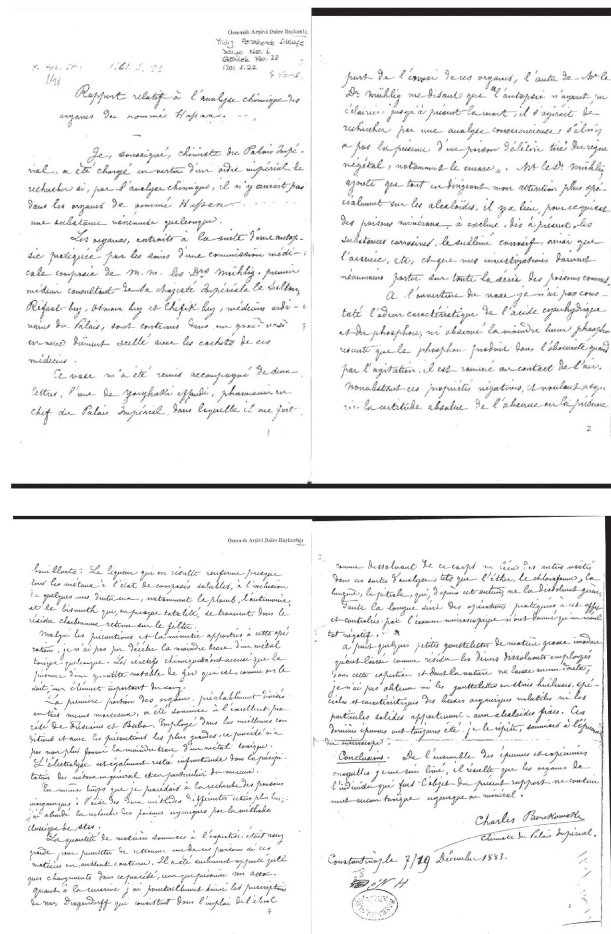 Osmanlı Arşivi Daire Başkanlığı
Yıldız Perakende
Dosya No: 1
Gömlek No: 28
1301.S.22
Rapport relatif à l'analyse chimique des
organes du nommé Hassan.
Je, soussigné, chimiste du Palais Impé-
rial, a été chargé en vertu d'un ordre impérial de
rechercher si, par l'analyse chimique, il n'y aurait pas
dans les organes du nommé Hassan
une substance vénéneuse quelconque.
Les organes, extraits à la suite d'une autop-
sie pratiquée par les soins d'une commission médi-
cale composée de M.M. les Drs Mühlig, premier
médecin consultant de Sa Majesté Impériale le Sultan,
Réfast bey, Osman bey et Chefik bey, médecins ordi-
naires du Palais, sont contenus dans un grand vase
en verre dûment scellé avec les cachets de ces
médecins.
Ce vase m'a été remis accompagné de deux
lettres, l'une de effendi, pharmacien en
chef du Palais Impérial, dans laquelle il me fait
1
part de l'envoi de ces organes, l'autre de Mr le
Dr Mühlig me disant que "l'autopsie n'ayant pu
éclaircir jusqu'à présent la mort, il s'agirait de
rechercher par une analyse consciencieuse s'il n'y
a pas la présence d'un poison délétère tiré du règne
végétal, notamment le curare". Mr le Dr Mühlig
ajoute que tout en dirigeant mon attention plus spé-
cialement sur les alcaloïdes, il y a lieu, pour ce qui est
des poisons minéraux, à exclure, dès à présent, les
substances corrosives, le sublimé corrosif, ainsi que
l'arsenic, etc, et que mes investigations doivent
néanmoins porter sur toute la série des poisons connus.
A l'ouverture du vase je n'ai pas cons-
taté l'odeur caractéristique de l'acide cyanhydrique
et du phosphore, ni observé la moindre lueur phospho-
rescente que le phosphore produit dans l'obscurité quand
par l'agitation, il est ramené au contact de l'air.
Nonobstant ces propriétés négatives, et voulant acqu-
la certitude absolue de l'absence ou la présence
2
Osmanlı Arşivi Daire Başkanlığı
bouillante: La liqueur qui en résulte renferme presque
tous les métaux à l'état de composés solubles, à l'exclusion
de quelques uns d'entre eux, notamment le plomb, l'antimoine,
et le bismuth qui, en presque totalité, se trouvent dans le
résidu charbonneux retenu sur le filtre.
Malgré les précautions et la minutie apportées à cette opé-
ration, je n'ai pas pu déceler la moindre trace d'un métal
toxique quelconque. Les réactifs chimiques n'ont accusé que la
présence d'une quantité notable de fer qui est, comme on le
sait, un élément important du sang.
La première portion des organes, préalablement divisés
en très menus morceaux, a été soumise à l'excellent pro-
cédé de Frésénius et Babo. Employé dans les meilleures con-
ditions et avec les précautions les plus grandes, ce procédé n'a
pas non plus fourni la moindre trace d'un métal toxique.
L'électrolyse est également restée infructueuse dans la précipi-
tation des métaux en général et en particulier du mercure.
En même temps que je procédais à la recherche des poisons
inorganiques à l'aide des deux méthodes différentes citées plus haut,
j'ai abordé la recherche des poisons organiques par la méthode
classique de Stas.
La quantité de matières soumises à l'expertise était assez
grande pour permettre de retrouver un de ces poisons si ces
matières en eussent contenu. Il a été seulement apporté quel-
ques changements dans ce procédé,
Quant à la curarine j'ai ponctuellement suivi les prescriptions
de Mr Dragendorff qui consistent dans l'emploi de l'alcool
7
comme dissolvant de ce corps au lieu des autres usités
dans ces sortes d'analyses, tels que l'éther, le chloroforme, la
benzine, le pétrole, qui, d'après cet auteur, ne la dissolvent guère.
Toute la longue série des opérations pratiquées à cet effet
et contrôlées par l'examen microscopique n'ont donné qu'un résul-
tat négatif.
A part quelques petites gouttelettes de matière grasse inodore
qu'ont laissé comme résidu les divers dissolvants employés
dans cette expertise et dont la nature ne laisse aucun doute,
je n'ai pas obtenu ni les gouttelettes ou stries huileuses, spé-
ciales et caractéristiques des bases organiques volatiles ni les
particules solides appartenant aux alcaloïdes fixes. Ces
données épreuves ont toujours été, je le répète, soumises à l'épreuve
du microscope.
Conclusions: De l'ensemble des épreuves et expériences
auxquelles je me suis livré, il résulte que les organes de
l'individu qui fait l'objet du présent rapport ne contien-
nent aucun toxique organique ni minéral.
Charles Bonkowski
Chimiste du Palais Impérial.
Constantinople 7/19 Décembre 1883.